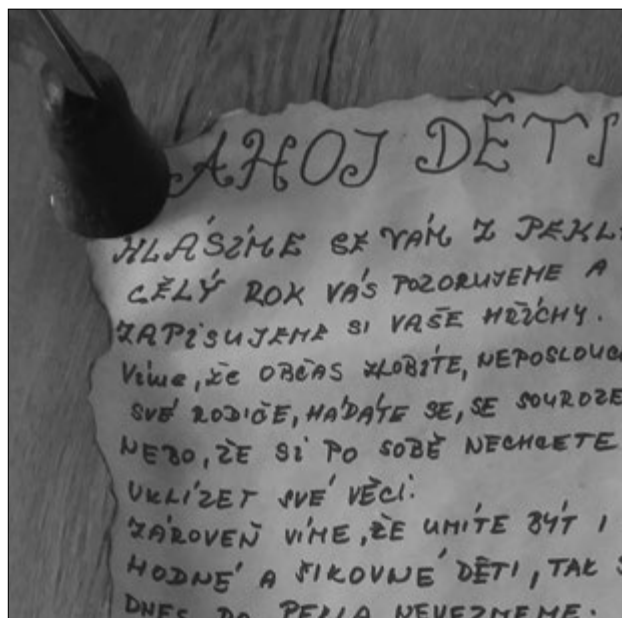 AHOJ DĚTI
HLÁSÍME SE VÁM Z PEKL
CĚLÝ ROK VÁS POZORUJEME A
ZAPISUJEME SI VAŠE HŘÍCHY.
Víme, že OBČAS ZLOBÍTE, NEPOSLOUC
SVÉ RODIČE, HÁDÁTE SE, SE SOUROZE
NEBO, ŽE SI PO SOBĚ NECHCETE
UKLÍZET SVÉ VĚCI.
ZÁROVEŇ VÍME, ŽE UMÍTE BÝT I
HODNÉ A ŠIKOVNÉ DĚTI, TAK S
DNES DO PEKLA NEVEZMEME.